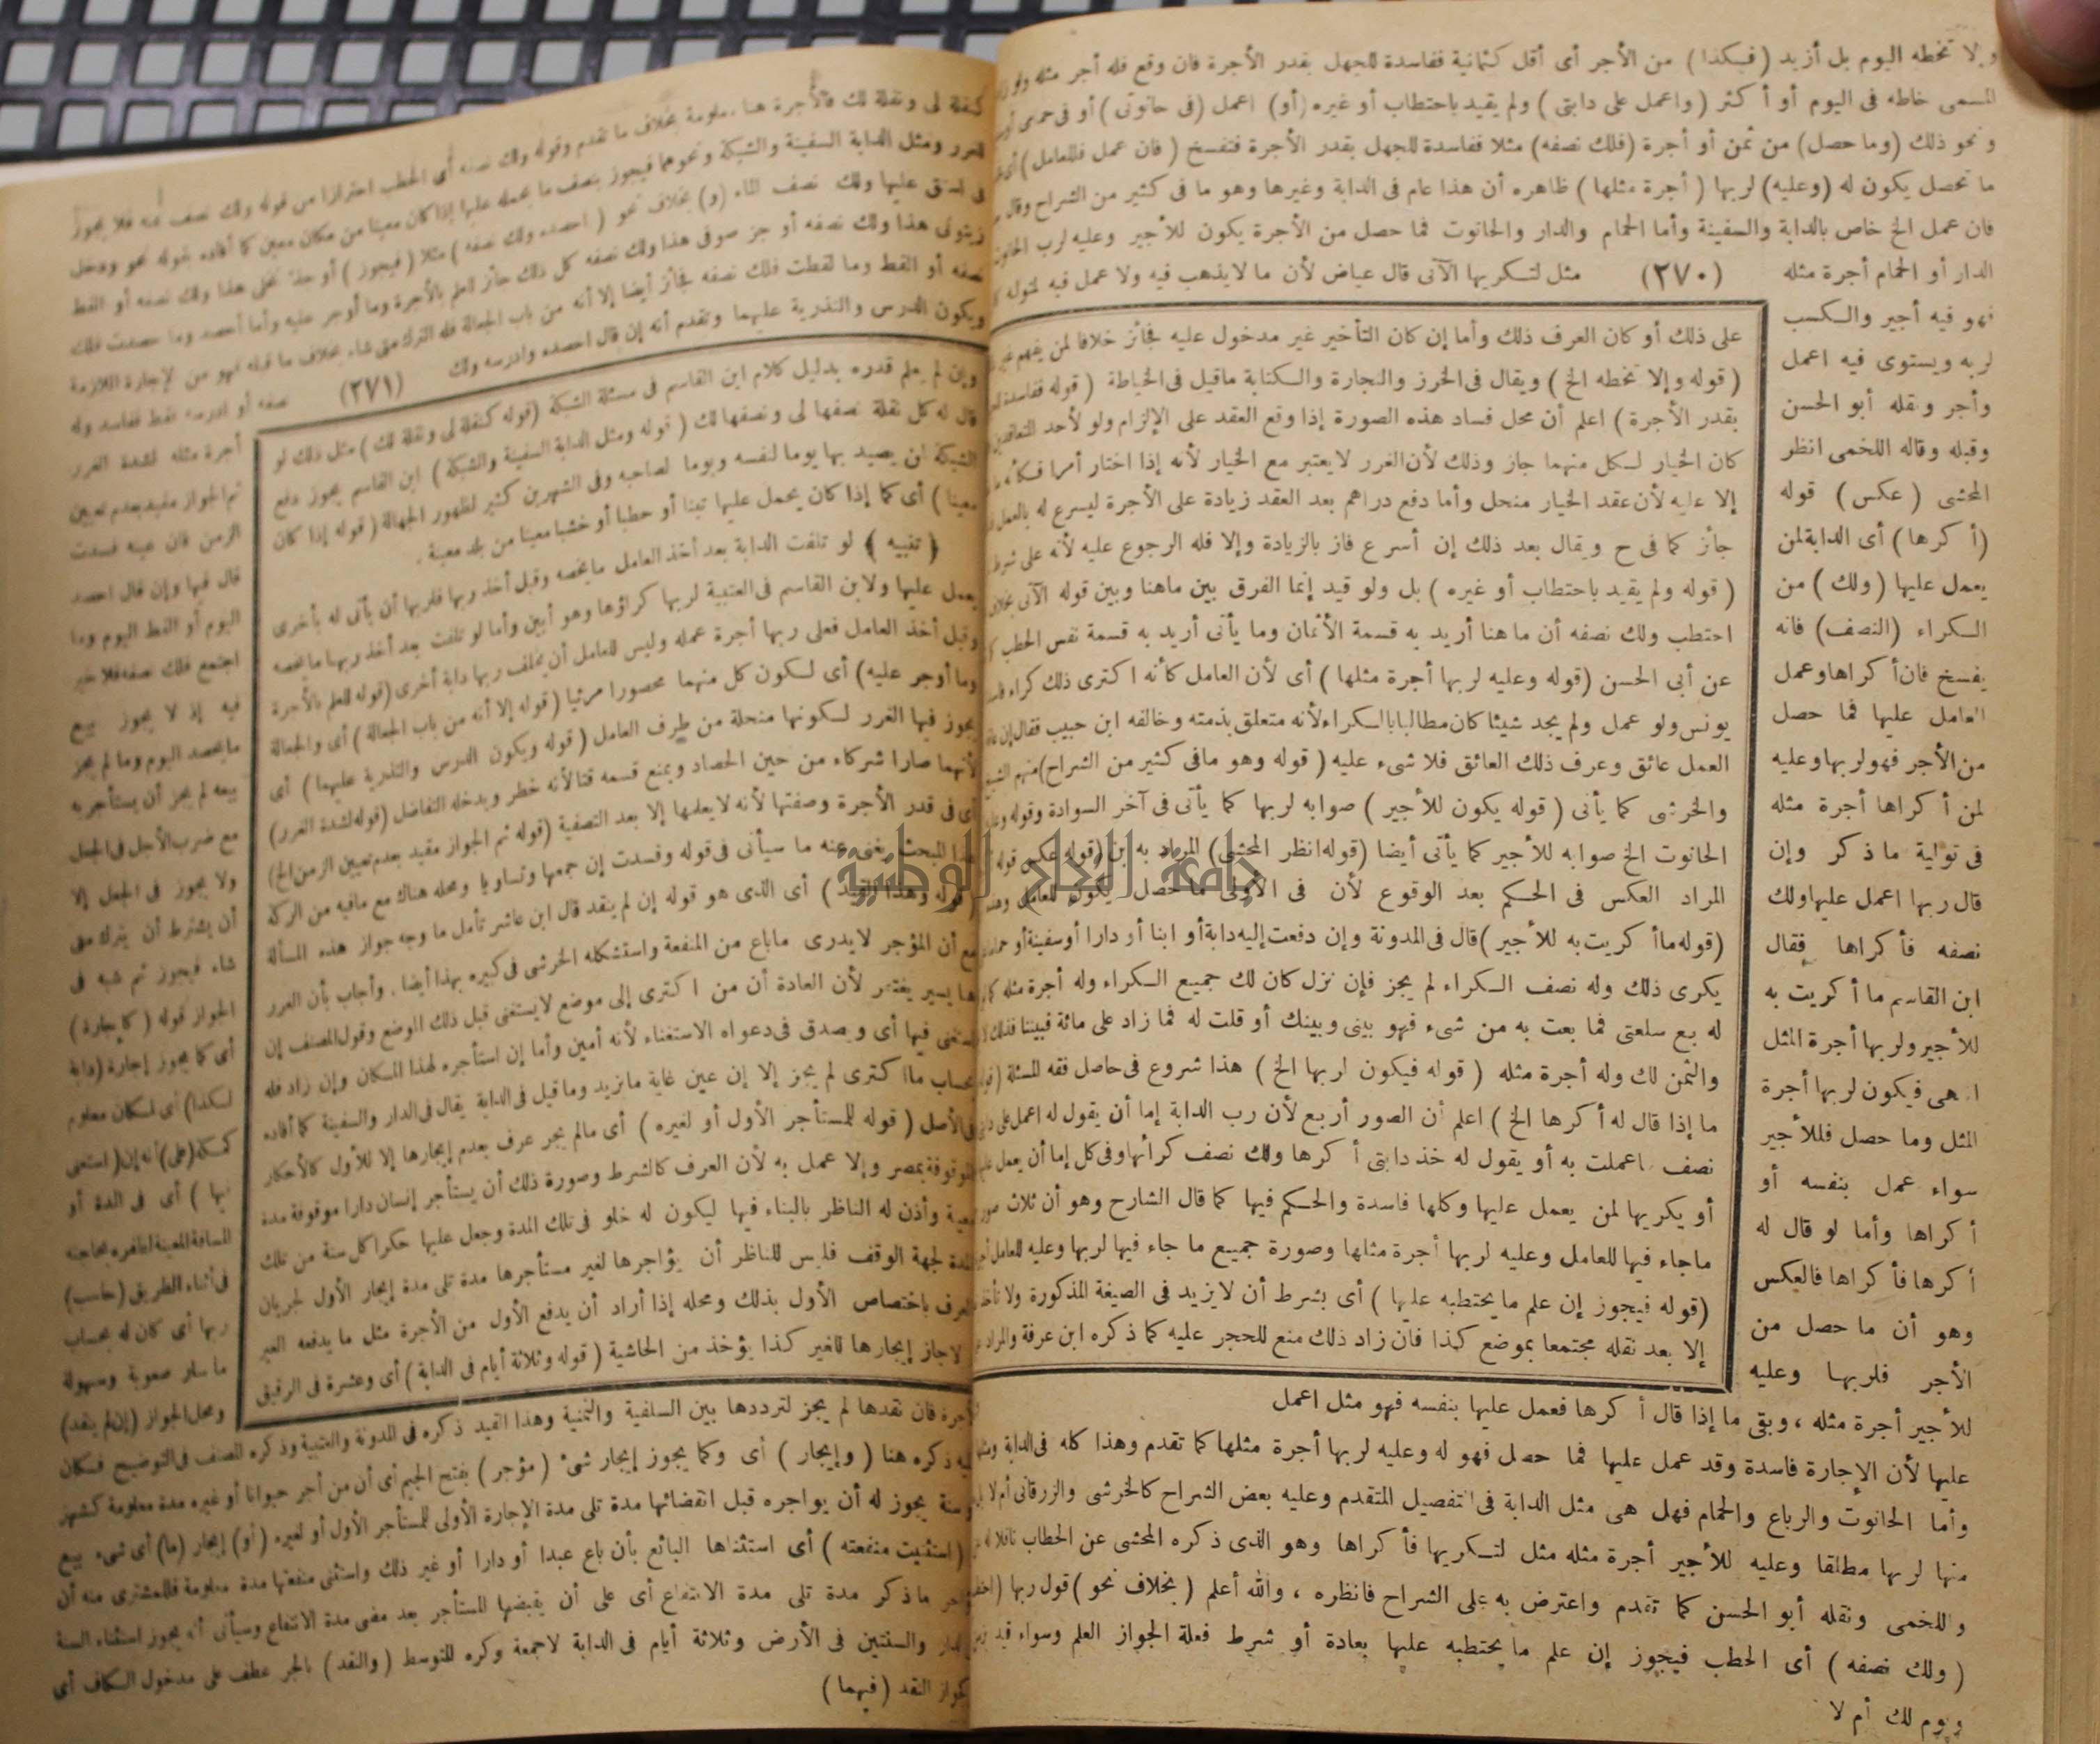 وإلا تخطه اليوم بل أزيد (فبكذا) من الأجر أى أقل كثمانية ففاسدة للجهل بقدر الأجرة فان وقع فله أجر مثله ولو زاد
المسمى خاطه فى اليوم أو أكثر (واعمل على دابتى) ولم يقيد باحتطاب أو غيره (أو) اعمل (فى حانوتى) أو فى حمامى أو
ونحو ذلك (وما حصل) من ثمن أو أجرة (فلك نصفه) مثلا ففاسدة للجهل بقدر الأجرة فتفسخ (فان عمل فللعامل) أى
ما تحصل يكون له (وعليه) لربها (أجرة مثلها) ظاهره أن هذا عام فى الدابة وغيرها وهو ما فى كثير من الشراح وقال
فان عمل الخ خاص بالدابة والسفينة وأما الحمام والدار والحانوت فما حصل من الأجرة يكون للأجير وعليه لرب الحانوت
الدار أو الحمام أجرة مثله (٢٧٠) مثل لتكريها الآتى قال عياض لأن ما لا يذهب فيه ولا عمل فيه لمتوله
فهو فيه أجير والكسب
لربه ويستوى فيه اعمل
وأجر ونقله أبو الحسن
وقبله وقاله اللخمى انظر
المحشى (عكس) قوله
(أكرها) أى الدابة لمن
يعمل عليها (ولك) من
الكراء (النصف) فانه
يفسخ فان أكراها وعمل
العامل عليها فما حصل
من الأجر فهو لربها وعليه
لمن أكراها أجرة مثله
فى تولية ما ذكر وإن
قال ربها اعمل عليها ولك
نصفه فأكراها فقال
ابن القاسم ما أكريت به
للأجير ولربها أجرة المثل
اهـ فيكون لربها أجرة
المثل وما حصل فللأجير
سواء عمل بنفسه أو
أكراها وأما لو قال له
أكرها فأكراها فالعكس
وهو أن ما حصل من
الأجر فلربها وعليه
على ذلك أو كان العرف ذلك وأما إن كان التأخير غير مدخول عليه فجائز خلافا لمن يفهم غير
(قوله وإلا تخطه الخ) ويقال فى الخرز والنجارة والكتابة ماقيل فى الخياطة (قوله ففاسدة
بقدر الأجرة) اعلم أن محل فساد هذه الصورة إذا وقع العقد على الإلزام ولو لأحد المتعاقدين
كان الخيار لكل منهما جاز وذلك لأن الغرر لا يعتبر مع الخيار لأنه إذا اختار أمرا فكأنه ما
إلا عليه لأن عقد الخيار منحل وأما دفع دراهم بعد العقد زيادة على الأجرة ليسرع له بالعمل
جائز كما فى ح ويقال بعد ذلك إن أسرع فاز بالزيادة وإلا فله الرجوع عليه لأنه على شرط
(قوله ولم يقيد باحتطاب أو غيره) بل ولو قيد إنما الفرق بين ماهنا وبين قوله الآتى بخلاف
احتطب ولك نصفه أن ما هنا أريد به قسمة الأثمان وما يأتى أريد به قسمة نفس الحطب
عن أبى الحسن (قوله وعليه لربها أجرة مثلها) أى لأن العامل كأنه اكترى ذلك كراء
يونس ولو عمل ولم يجد شيئا كان مطالبا بالكراء لأنه متعلق بذمته وخالفه ابن حبيب فقال إن
العمل عائق وعرف ذلك العائق فلا شىء عليه (قوله وهو ما فى كثير من الشراح) منهم
والخرشى كما يأتى (قوله يكون للأجير) صوابه لربها كما يأتى فى آخر السوادة وقوله
الحانوت الخ صوابه للأجير كما يأتى أيضا (قوله انظر المحشى) المراد به ابن (قوله عكس قوله
المراد العكس فى الحكم بعد الوقوع لأن فى الأولى ما حصل يكون للعامل
(قوله ما أكريت به للأجير) قال فى المدونة وإن دفعت إليه دابة أو ابنا أو دارا أو سفينة أو حماما
يكرى ذلك وله نصف الكراء لم يجز فإن نزل كان لك جميع الكراء وله أجرة مثله
له بع سلعتى فما بعت به من شىء فهو بينى وبينك أو قلت له فما زاد على مائة فبيننا فذلك
والثمن لك وله أجرة مثله (قوله فيكون لربها الخ) هذا شروع فى حاصل فقه المسئلة
ما إذا قال له أكرها الخ) اعلم أن الصور أربع لأن رب الدابة إما أن يقول له اعمل على
نصف ما عملت به أو يقول له خذ دابتى أكرها ولك نصف كرائها وفى كل إما أن يعمل
أو يكريها لمن يعمل عليها وكلها فاسدة والحكم فيها كما قال الشارح وهو أن ثلاث صور
ماجاء فيها للعامل وعليه لربها أجرة مثلها وصورة جميع ما جاء فيها لربها وعليه للعامل
(قوله فيجوز إن علم ما يحتطبه عليها) أى بشرط أن لا يزيد فى الصيغة المذكورة ولا تأخذ
إلا بعد نقله مجتمعا بموضع كذا فان زاد ذلك منع للحجر عليه كما ذكره ابن عرفة والمراد
للأجير أجرة مثله ، وبقى ما إذا قال أكرها فعمل عليها بنفسه فهو مثل اعمل
عليها لأن الإجارة فاسدة وقد عمل عليها فما حصل فهو له وعليه لربها أجرة مثلها كما تقدم وهذا كله فى الدابة
وأما الحانوت والرباع والحمام فهل هى مثل الدابة فى التفصيل المتقدم وعليه بعض الشراح كالخرشى والزرقانى أم لا
منها لربها مطلقا وعليه للأجير أجرة مثله مثل لتكريها فأكراها وهو الذى ذكره المحشى عن الحطاب ناقلا له
واللخمى ونقله أبو الحسن كما تقدم واعترض به على الشراح فانظره ، والله أعلم (بخلاف نحو) قول ربها
(ولك نصفه) أى الحطب فيجوز إن علم ما يحتطبه عليها بعادة أو شرط فعلة الجواز العلم وسواء قيد
ويوم لك أم لا
كنقلة لى ونقلة لك فالأجرة هنا معلومة بخلاف ما تقدم وقوله ولك نصفه أى الحطب احترازا من قوله ولك نصف ثمنه فلا يجوز
للغرر ومثل الدابة السفينة والشبكة ونحوهما فيجوز بنصف ما يحمله عليها إذا كان معينا من مكان معين كما أفاده بقوله نحو ودخل
عليها ولك نصف الماء (و) بخلاف نحو (احصده ولك نصفه) مثلا (فيجوز) أو جذ نخلى هذا ولك نصفه أو القط
زيتونى هذا ولك نصفه أو جز صوفى هذا ولك نصفه كل ذلك جائز للعلم بالأجرة وما أوجر عليه وأما احصد وما حصدت فلك
نصفه أو القط وما لقطت فلك نصفه فجائز أيضا إلا أنه من باب الجعالة فله الترك متى شاء بخلاف ما قبله فهو من الإجارة اللازمة
ويكون الدرس والتذرية عليهما وتقدم أنه إن قال احصده وادرسه ولك (٢٧١) نصفه أو ادرسه فقط ففاسد وله
أجرة مثله لشدة الغرر
ثم الجواز مقيد بعدم تعيين
الزمن فان عينه فسدت
قال فيها وإن قال احصد
اليوم أو القط اليوم وما
اجتمع فلك نصفه فلا خير
فيه إذ لا يجوز بيع
ما يحصد اليوم وما لم يجز
بيعه لم يجز أن يستأجر به
مع ضرب الأجل فى الجعل
ولا يجوز فى الجعل إلا
أن يشترط أن يترك متى
شاء فيجوز ثم شبه فى
الجواز قوله (كإجارة)
أى كما يجوز إجارة (دابة
لكذا) أى لمكان معلوم
كمكة (على) أنه إن (استغنى
فيها) أى فى المدة أو
المسافة المعينة لظفره بحاجته
فى أثناء الطريق (حاسب)
ربها أى كان له بحساب
ما سار صعوبة وسهولة
ومحل الجواز (إن لم ينقد)
وإن لم يعلم قدره بدليل كلام ابن القاسم فى مسئلة الشبكة (قوله كنقلة لى ونقلة لك) مثل ذلك لو
قال له كل نقلة نصفها لى ونصفها لك (قوله ومثل الدابة السفينة والشبكة) ابن القاسم يجوز دفع
الشبكة لمن يصيد بها يوما لنفسه ويوما لصاحبه وفى الشهرين كثير لظهور الجهالة (قوله إذا كان
معينا) أى كما إذا كان يحمل عليها تبنا أو حطبا أو خشبا معينا من بلد معينة .
﴿تنبيه﴾ لو تلفت الدابة بعد أخذ العامل ما يخصه وقبل أخذ ربها فلربها أن يأتى له بأخرى
يعمل عليها ولابن القاسم فى العتبية لربها كراؤها وهو أبين وأما لو تلفت بعد أخذ ربها ما يخصه
وقبل أخذ العامل فعلى ربها أجرة عمله وليس للعامل أن يخلف ربها دابة أخرى (قوله للعلم بالأجرة
وما أوجر عليه) أى لكون كل منهما محصورا مرئيا (قوله إلا أنه من باب الجعالة) أى والجعالة
يجوز فيها الغرر لكونها منحلة من طرف العامل (قوله ويكون الدرس والتذرية عليهما) أى
لأنهما صارا شركاء من حين الحصاد ويمنع قسمه قتا لأنه خطر ويدخله التفاضل (قوله لشدة الغرر)
أى فى قدر الأجرة وصفتها لأنه لا يعلمها إلا بعد التصفية (قوله ثم الجواز مقيد بعدم تعيين الزمن الخ)
هذا المبحث يغنى عنه ما سيأتى فى قوله وفسدت إن جمعهما وتساويا ومحله هناك مع مافيه من الركة
(قوله وهذا القيد) أى الذى هو قوله إن لم ينقد قال ابن عاشر تأمل ما وجه جواز هذه المسألة
مع أن المؤجر لا يدرى ماباع من المنفعة واستشكله الخرشى فى كبيره بهذا أيضا . وأجاب بأن الغرر
هنا يسير يغتفر لأن العادة أن من اكترى إلى موضع لا يستغنى قبل ذلك الموضع وقول المصنف إن
استغنى فيها أى ويصدق فى دعواه الاستغناء لأنه أمين وأما إن استأجره لهذا المكان وإن زاد فله
بحساب ما اكترى لم يجز إلا إن عين غاية ما يزيد وما قيل فى الدابة يقال فى الدار والسفينة كما أفاده
فى الأصل (قوله للمستأجر الأول أو لغيره) أى مالم يجر عرف بعدم إيجارها إلا للأول كالأحكار
الموقوفة بمصر وإلا عمل به لأن العرف كالشرط وصورة ذلك أن يستأجر إنسان دارا موقوفة مدة
معينة وأذن له الناظر بالبناء فيها ليكون له خلو فى تلك المدة وجعل عليها حكرا كل سنة من تلك
المدة لجهة الوقف فليس للناظر أن يؤاجرها لغير مستأجرها مدة تلى مدة إيجار الأول لجريان
العرف باختصاص الأول بذلك ومحله إذا أراد أن يدفع الأول من الأجرة مثل ما يدفعه الغير
لا جاز إيجارها للغير كذا يؤخذ من الحاشية (قوله وثلاثة أيام فى الدابة) أى وعشرة فى الرقيق
الأجرة فان نقدها لم يجز لترددها بين السلفية والثمنية وهذا القيد ذكره فى المدونة والعتبية وذكره المصنف فى التوضيح فكان
ذكره هنا (وإيجار) أى وكما يجوز إيجار شئ (مؤجر) بفتح الجيم أى أن من أجر حيوانا أو غيره مدة معلومة كشهر
وسنة يجوز له أن يواجره قبل انقضائها مدة تلى مدة الإجارة الأولى للمستأجر الأول أو لغيره (أو) إيجار (ما) أى شىء بيع
(استثنيت منفعته) أى استثناها البائع بأن باع عبدا أو دارا أو غير ذلك واستثنى منفعتها مدة معلومة فللمشترى منه أن
ما ذكر مدة تلى مدة الانتفاع أى على أن يقبضها المستأجر بعد مضى مدة الانتفاع وسيأتى أنه يجوز استثناء السنة
والسنتين فى الأرض وثلاثة أيام فى الدابة لا جمعة وكره المتوسط (والنقد) بالجر عطف على مدخول الكاف أى
كجواز النقد (فيهما)
جامعة النجاح الوطنية